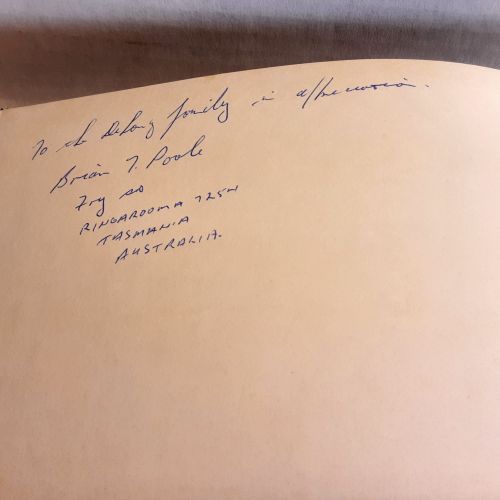 To the DeLong family in appreciation.
Brian T. Poole
Fry So
RINGAROOMA 7254
TASMANIA
AUSTRALIA.